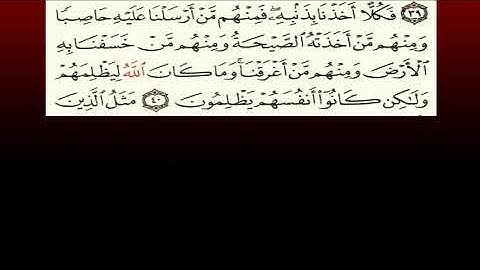 ﴿٣٩﴾ فَكُلًّا أَخَذْنَا بِذَنۢبِهِۦ ۖ فَمِنْهُم مَّنْ أَرْسَلْنَا عَلَيْهِ حَاصِبًا
وَمِنْهُم مَّنْ أَخَذَتْهُ ٱلصَّيْحَةُ وَمِنْهُم مَّنْ خَسَفْنَا بِهِ
ٱلْأَرْضَ وَمِنْهُم مَّنْ أَغْرَقْنَا ۚ وَمَا كَانَ ٱللَّهُ لِيَظْلِمَهُمْ
وَلَٰكِن كَانُوٓا۟ أَنفُسَهُمْ يَظْلِمُونَ ﴿٤٠﴾ مَثَلُ ٱلَّذِينَ